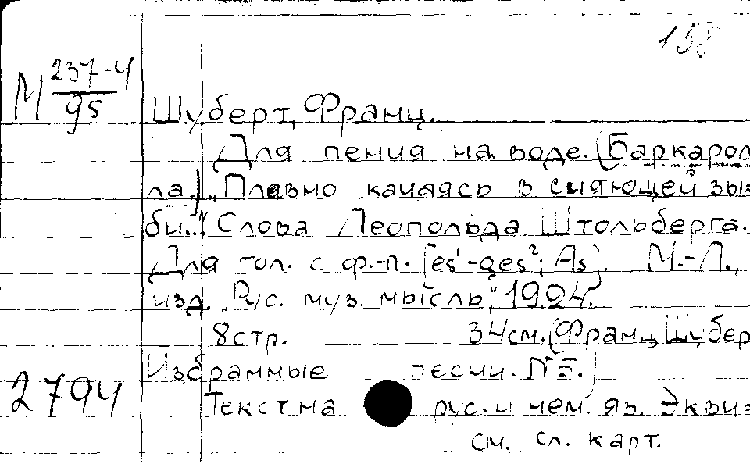 158
М 237-4
95
Шуберт, Франц.
Для пения на воде. (Баркарол
ла.) "Плавно качаясь в сияющей зы
би.." Слова Леопольда Штольберга.
Для гол. с ф.-п. [es¹-ges²; As]. М.-Л.,
изд. "Рус. муз. мысль", 1924.
8 стр. 34 см. (Франц Шубер
Избранные песни. №5.)
2794
Текст на рус. и нем. яз. Экз
см. сл. карт.